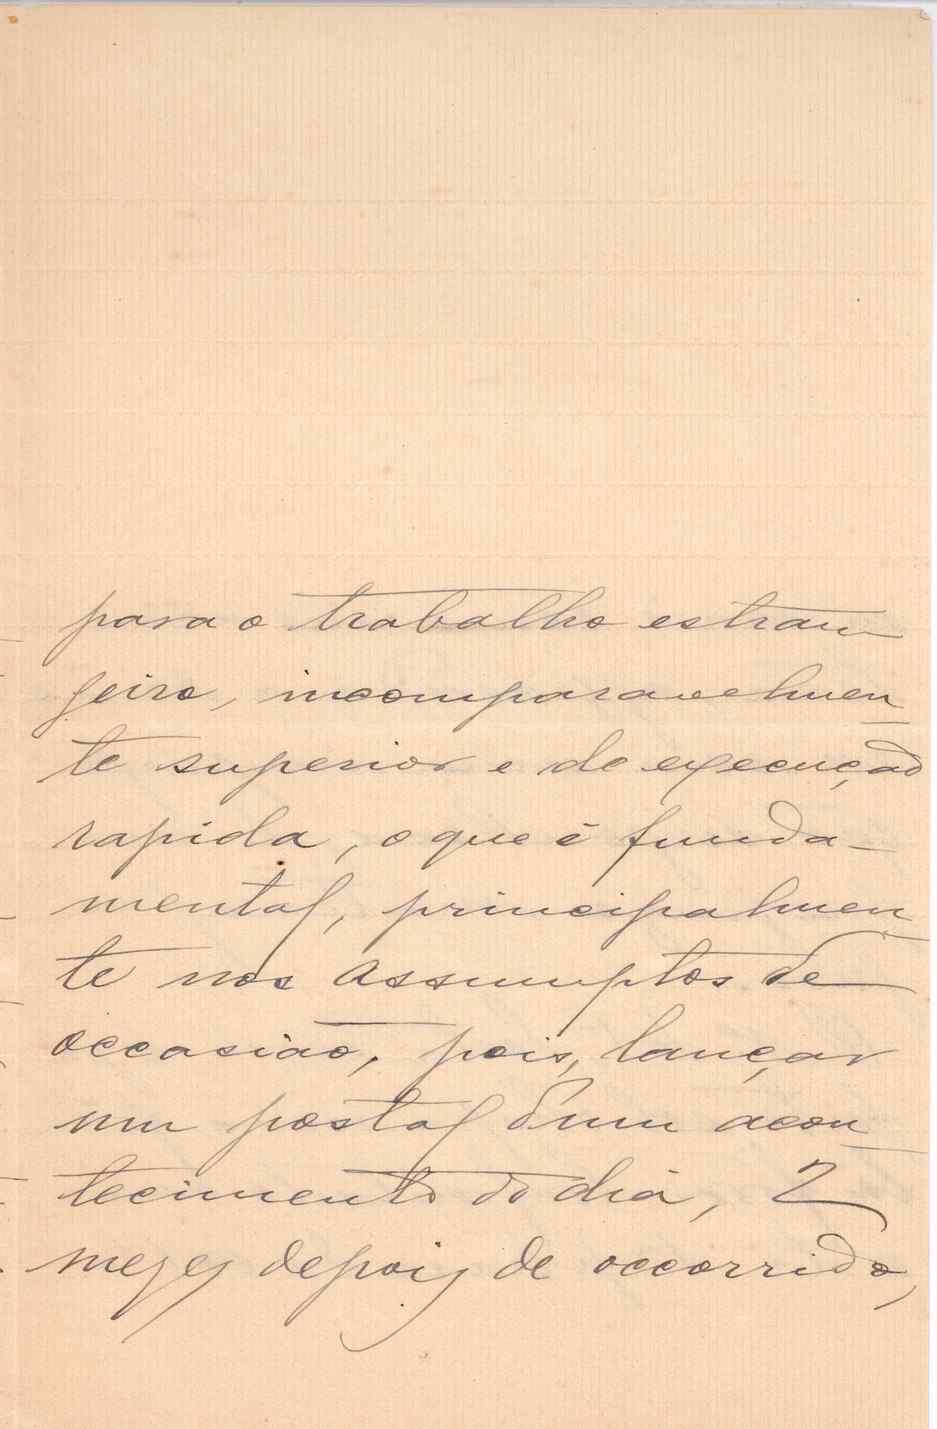 para o trabalho estran
geiro, incomparavelmen
te superior e de execução
rapida, o que é funda-
mental, principalmen
te nos assumptos de
occasião, pois, lançar
um postal d'um acon
tecimento do dia, 2
mezes depois de occorrido,